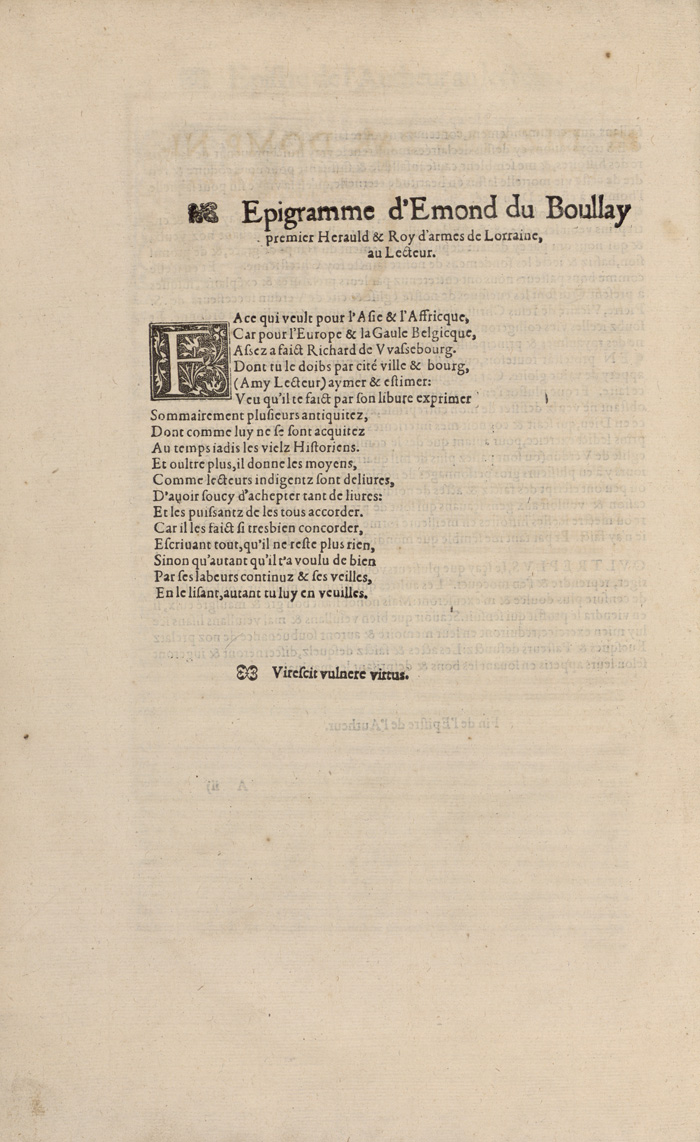 Epigramme d'Emond du Boullay
premier Herauld & Roy d'armes de Lorraine,
au Lecteur.
FAce qui veult pour l'Aſie & l'Affricque,
Car pour l'Europe & la Gaule Belgicque,
Aſſez a faict Richard de Vvaſſebourg.
Dont tu le doibs par cité ville & bourg,
(Amy Lecteur) aymer & eſtimer:
Veu qu'il te faict par ſon libure exprimer
Sommairement pluſieurs antiquitez,
Dont comme luy ne ſe ſont acquitez
Au temps iadis les vielz Hiſtoriens.
Et oultre plus, il donne les moyens,
Comme lecteurs indigentz ſont deliures,
D'auoir ſoucy d'achepter tant de liures:
Et les puiſſantz de les tous accorder.
Car il les faict ſi tresbien concorder,
Eſcriuant tout, qu'il ne reſte plus rien,
Sinon qu'autant qu'il t'a voulu de bien
Par ſes labeurs continuz & ſes veilles,
En le liſant, autant tu luy en veuilles.
Vireſcit vulnere virtus.